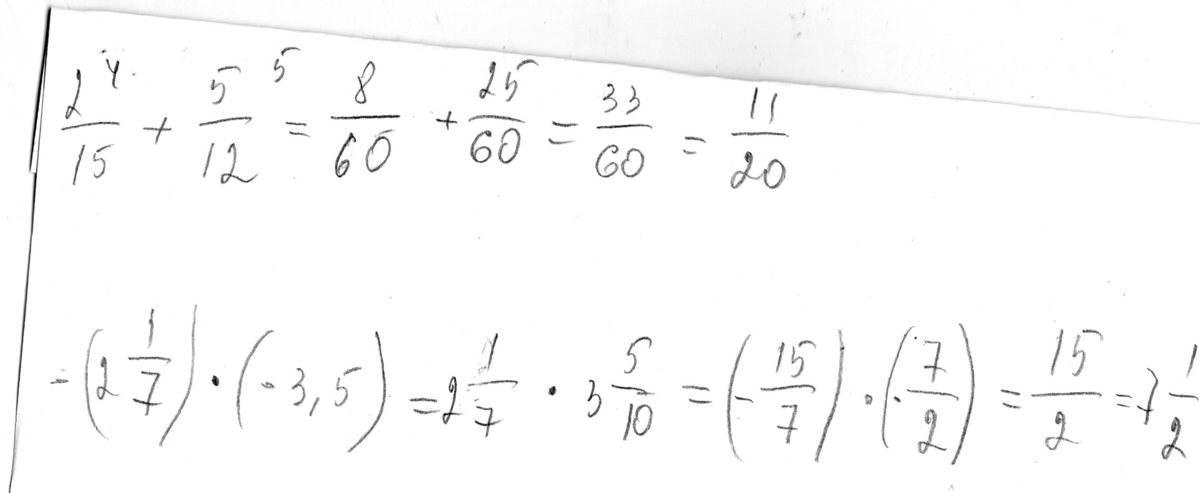 2/15 ⁴ + 5/12 ⁵ = 8/60 + 25/60 = 33/60 = 11/20
-(2 1/7) · (-3,5) = 2 1/7 · 3 5/10 = (-15/7) · (-7/2) = 15/2 = 7 1/2